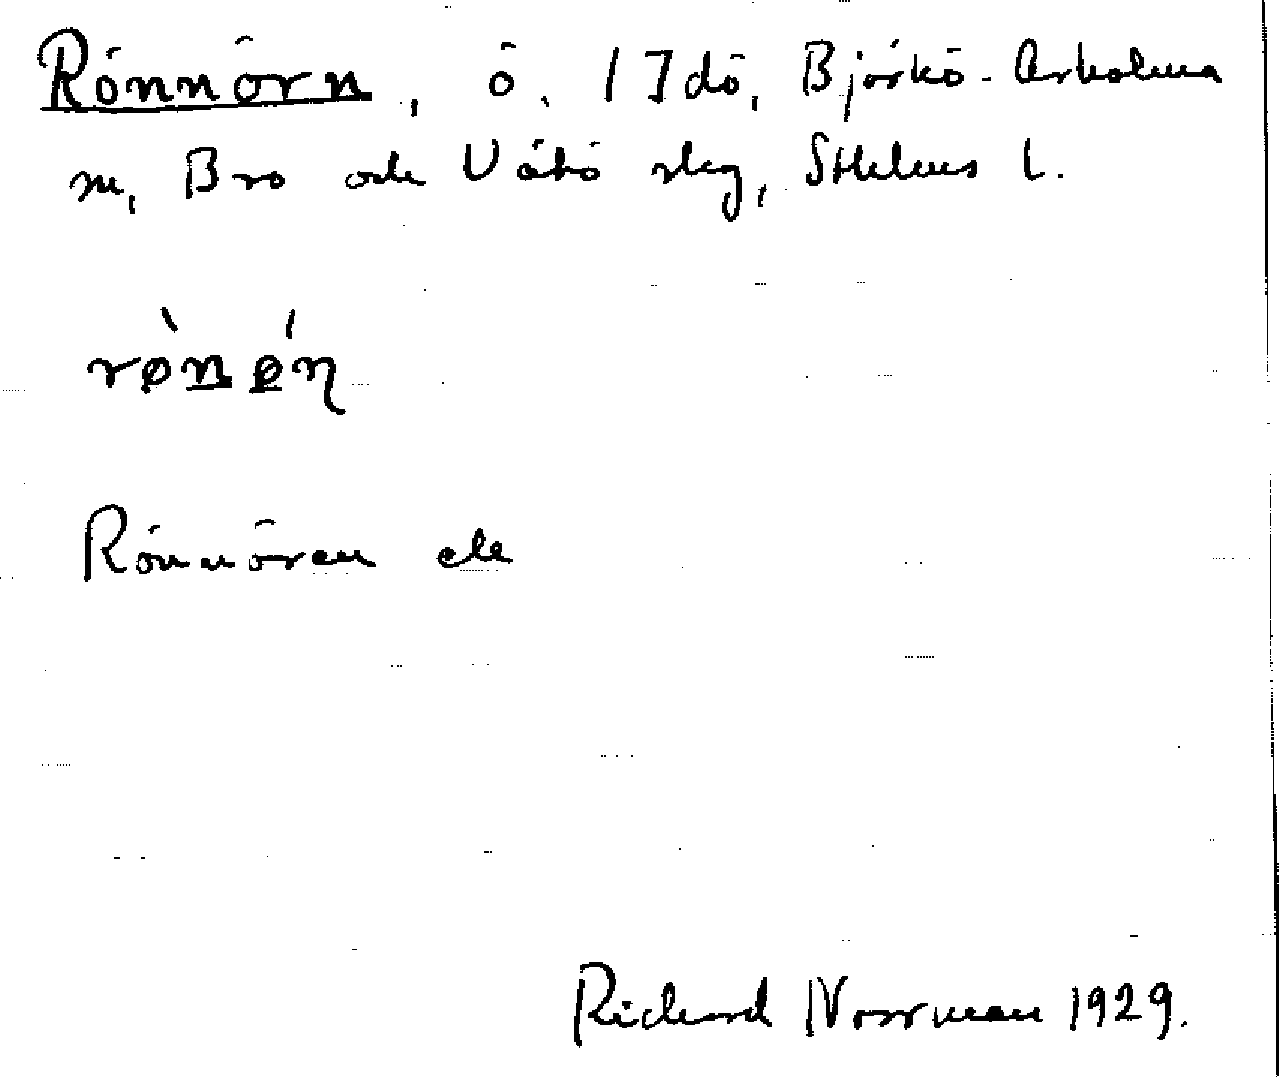 Rönnörn, ö, 1 Idö, Björkö-Arholma
sn, Bro och Vätö skg, Sthlms l.
rø̀nǿn̥
Rönnören ek
Richard Norrman 1929.